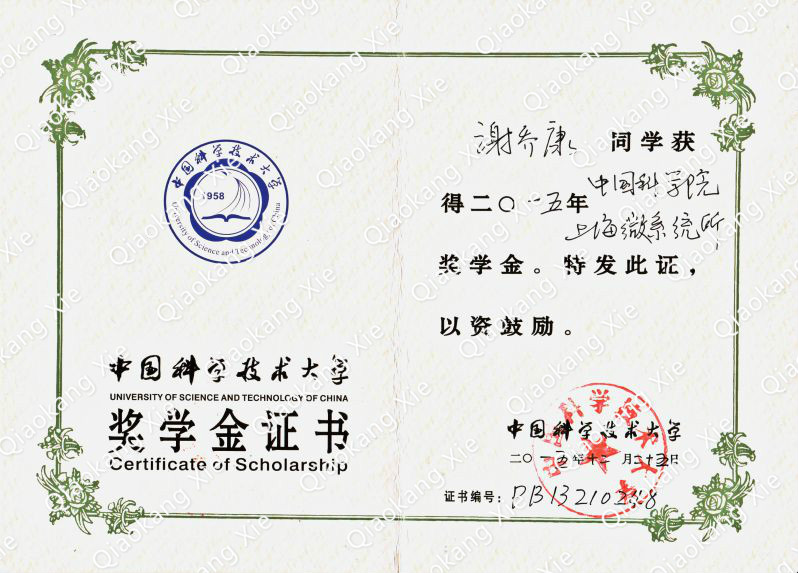 中国科学技术大学
1958
University of Science and Technology of China
中国科学技术大学
UNIVERSITY OF SCIENCE AND TECHNOLOGY OF CHINA
奖学金证书
Certificate of Scholarship
謝乔康 同学获
得二〇一五年 中国科学院
上海微系统所
奖学金。特发此证，
以资鼓励。
中国科学技术大学
中国科学技术大学
二〇一五年十二月二十五日
证书编号：PB13210238
Qiaokang Xie